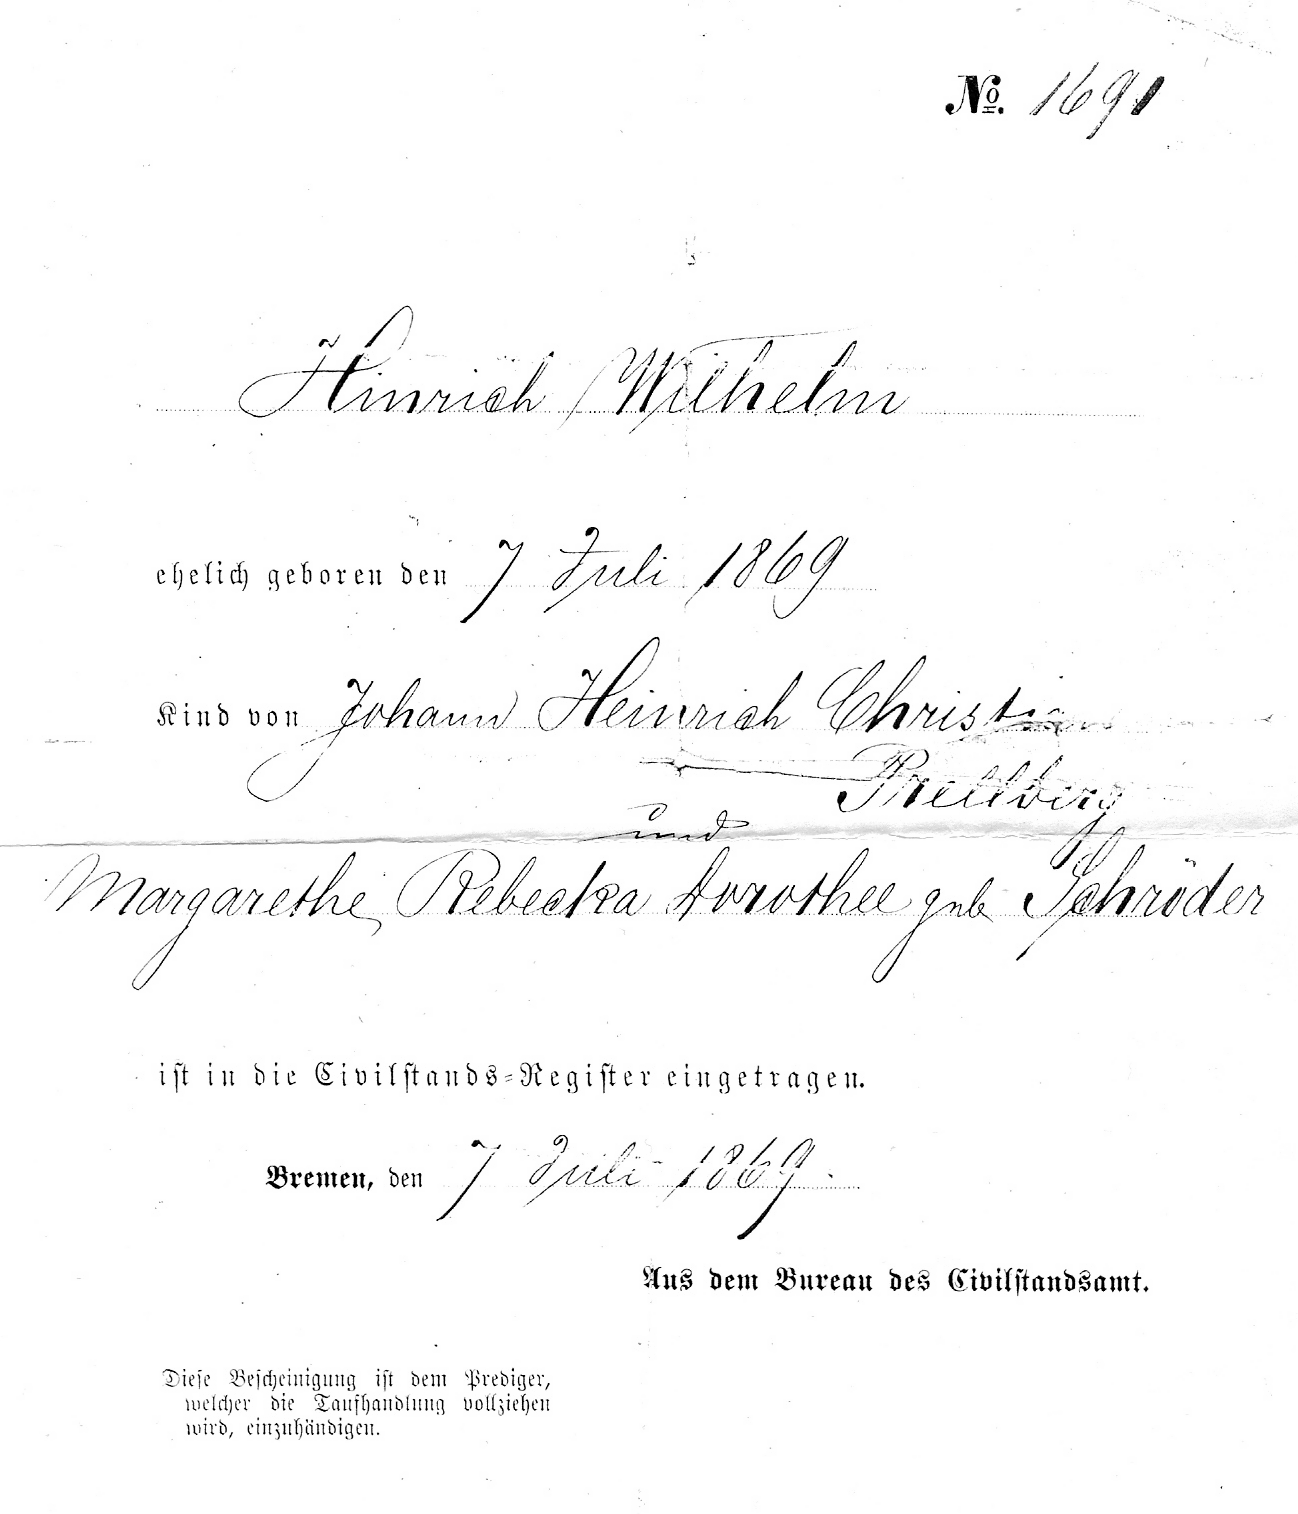 No. 1691
Hinrich Wilhelm
ehelich geboren den 7 Juli 1869
Kind von Johann Heinrich Christian
Prellberg
und
Margarethe Rebecka Dorothee geb Schröder
ist in die Civilstands-Register eingetragen.
Bremen, den 7 Juli 1869.
Aus dem Bureau des Civilstandsamt.
Diese Bescheinigung ist dem Prediger,
welcher die Taufhandlung vollziehen
wird, einzuhändigen.